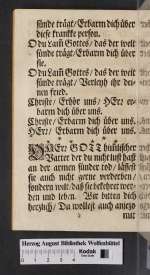 sünde trägt/ Erbarm dich über
diese krancke person.
O du Lam̃ Gottes/ das der welt
sünde trägt/ Erbarm dich über
sie.
O du Lam̃ Gottes/ das der welt
sünde trägt/ Verleyh ihr dei-
nen fried.
Christe/ Erhör uns/ HErr er-
barm dich über uns.
Christe/ Erbarm dich über uns.
HErr/ Erbarm dich über uns.
HErr GOTT himlischer
Vatter der du nicht lust hast
an der armen sünder tod/ lässest
sie auch nicht gerne verderben/
sondern wilt/ daß sie bekehret wer-
den und leben. Wir bitten dich
hertzlich/ Du wollest auch
nur
Herzog August Bibliothek Wolfenbüttel